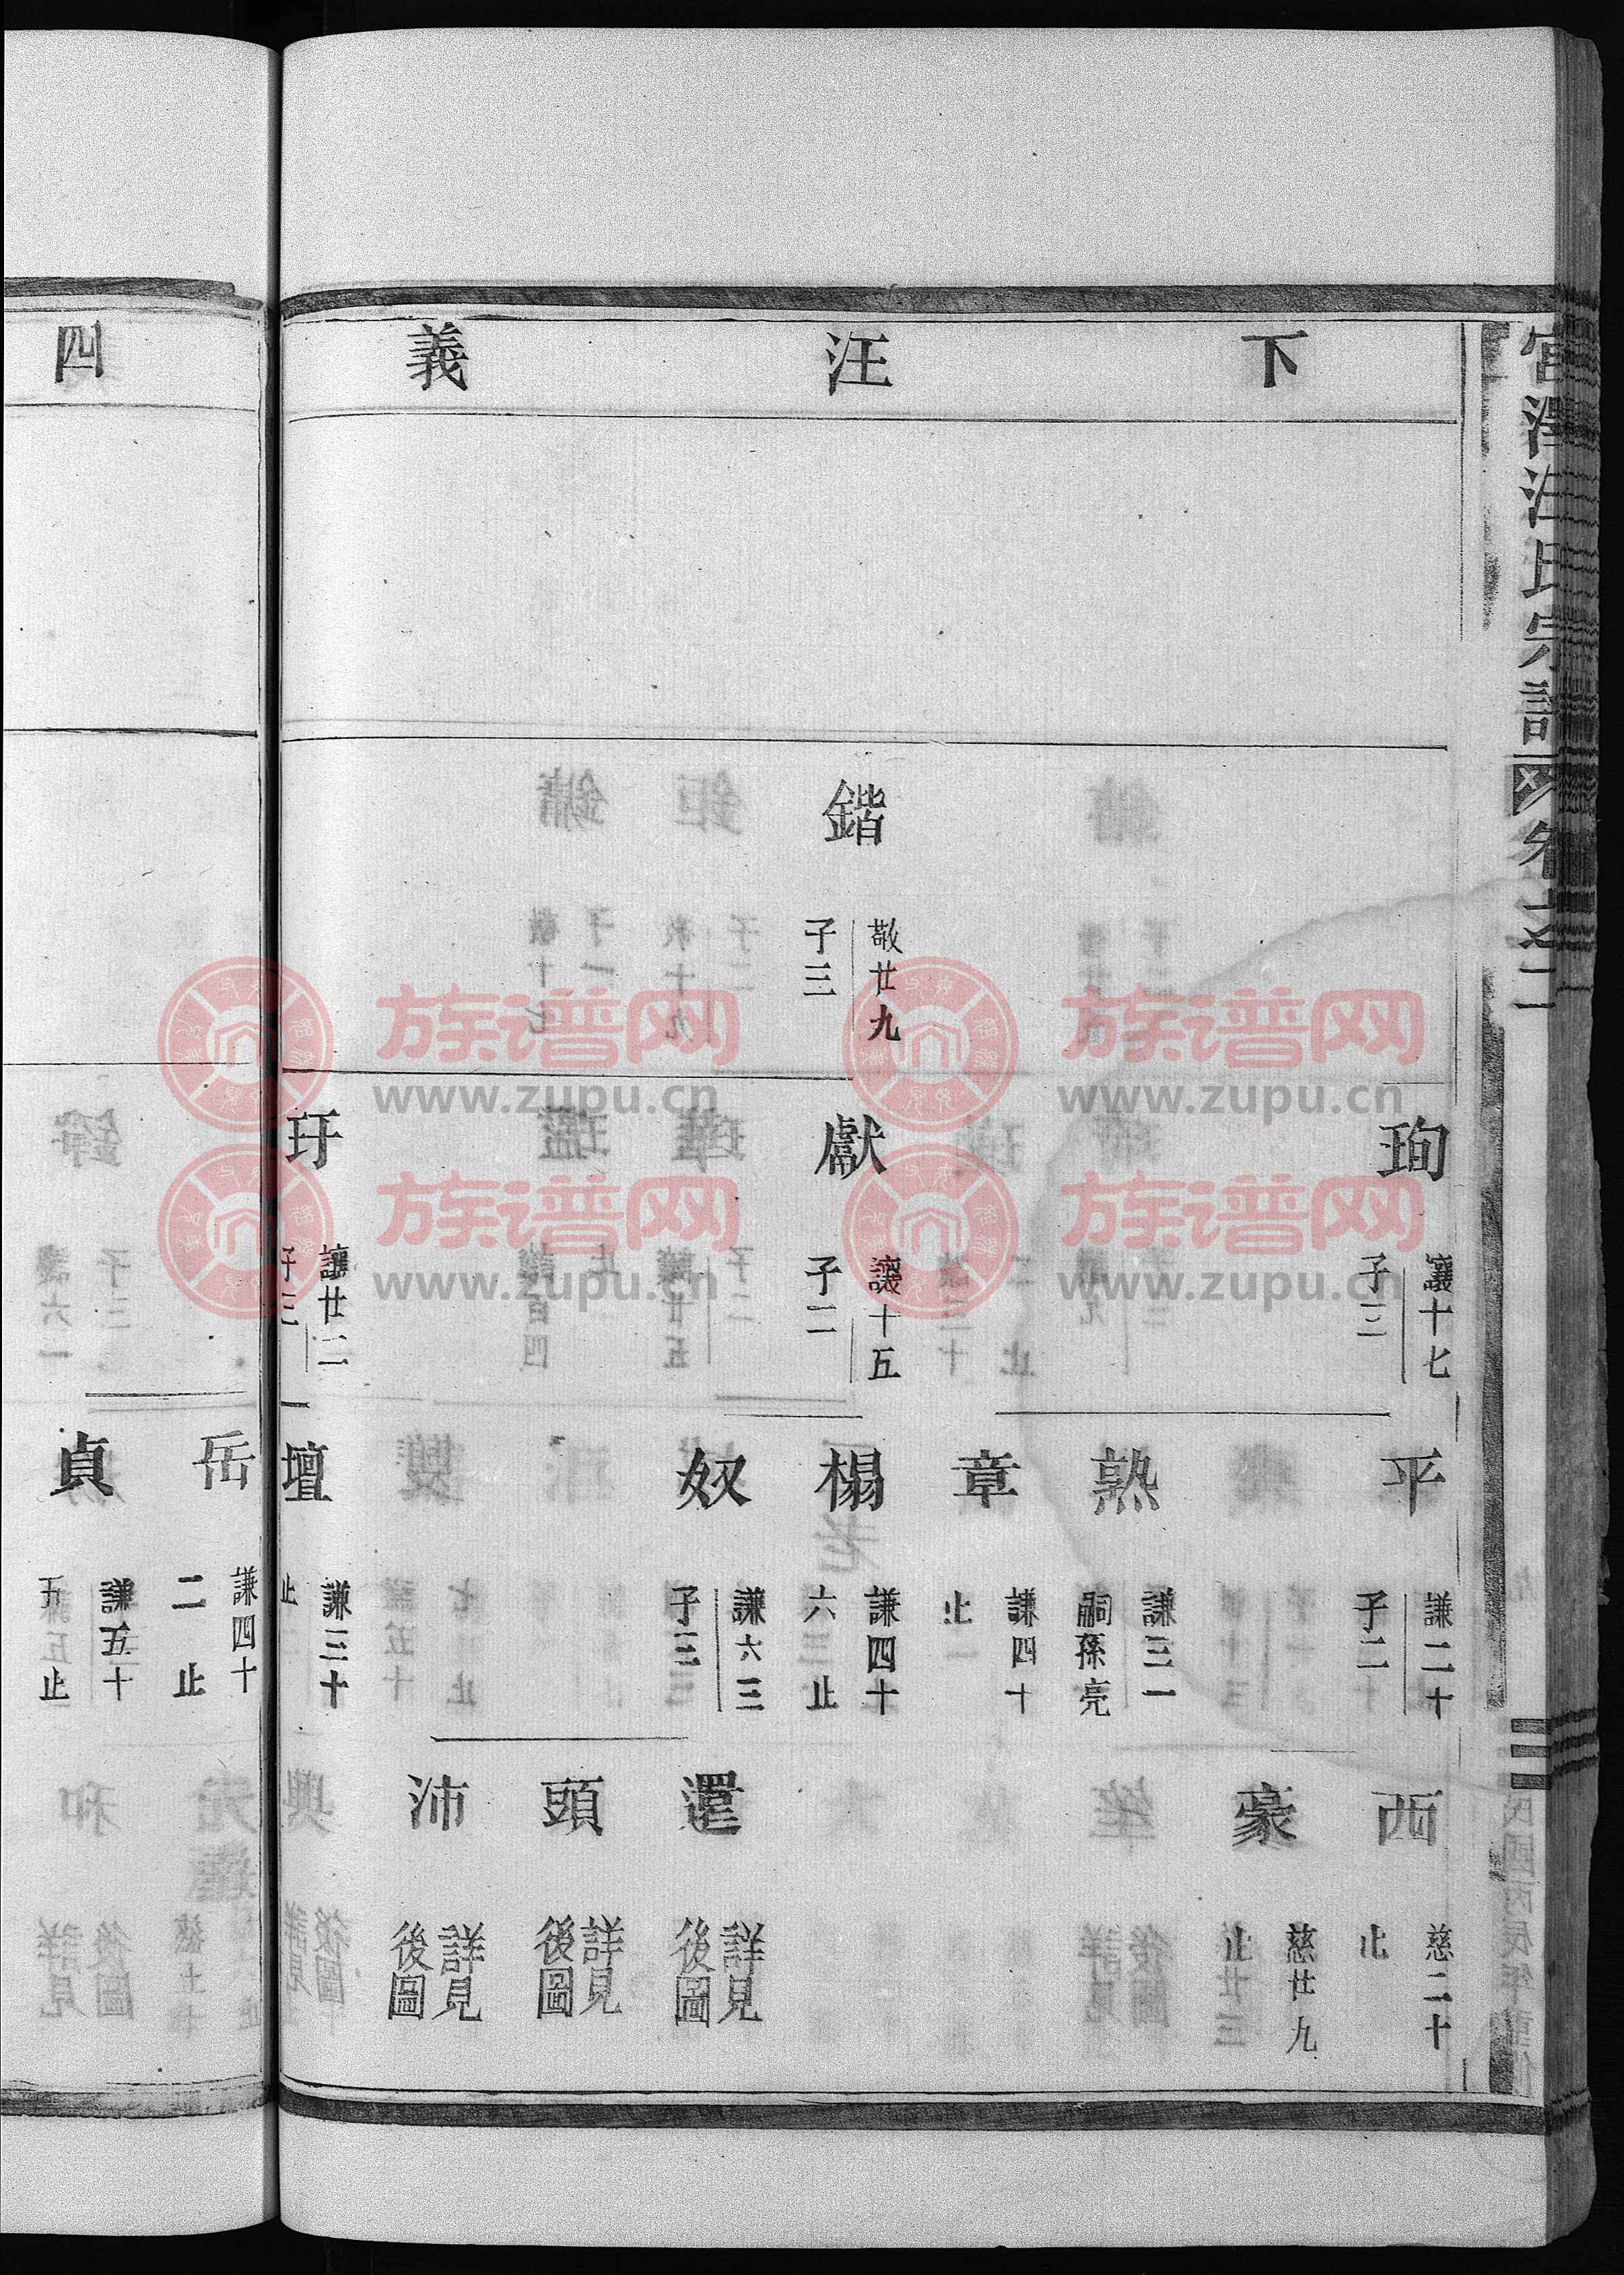 宫澤汪氏宗譜 卷之二 三
下 汪 義
鍇 敬廿九 子三
珣 讓十七 子三
獻 讓十五 子二
玗 讓廿二 子三
平 謙二十 子二
熟 謙三一 嗣孫亮
章 謙四十 止
楊 謙四十六 止
奴 謙六三 子三
壇 謙三十 止
西 慈二十 止
豪 慈廿九 止
還 詳見後圖
頭 詳見後圖
沛 詳見後圖
四
岳 謙四十二 止
貞 謙五十五 止
族谱网
www.zupu.cn
族谱网
www.zupu.cn
族谱网
www.zupu.cn
族谱网
www.zupu.cn